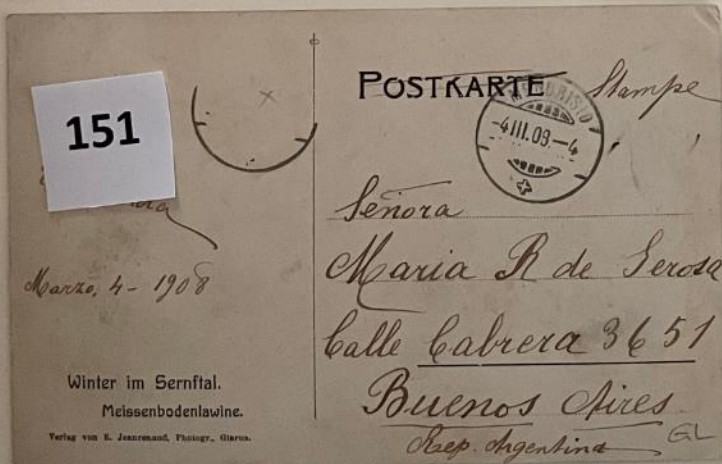 151
POSTKARTE Stampe
MENDRISIO
-4III.08.-4
Señora
Maria R de Serosa
Calle Cabrera 3651
Buenos Aires
Rep. Argentina
GL
Marzo, 4 - 1908
Winter im Sernftal.
Meissenbodenlawine.
Verlag von E. Jeanrenaud, Photogr., Glarus.